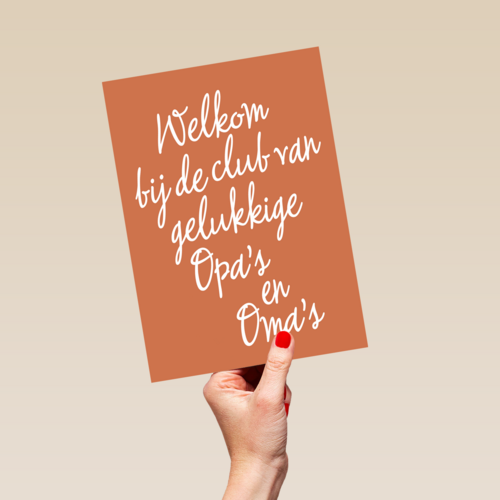 Welkom
bij de club van
gelukkige
Opa's
en
Oma's